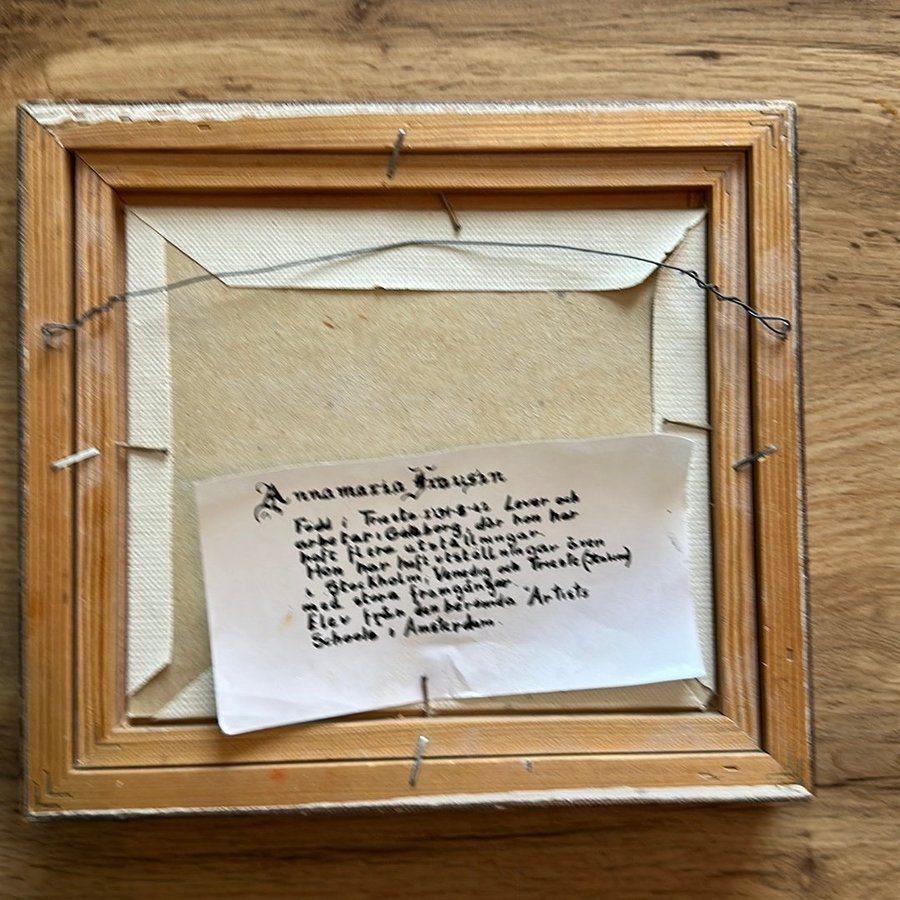 Annamaria
Född i Trieste Lever och
arbetar i Göteborg, där hon har
haft flera utställningar.
Hon har haft utställningar även
i Stockholm, Venedig och Trieste
med stora framgångar.
Elev från den berömda "Artists
Schoole i Amsterdam.